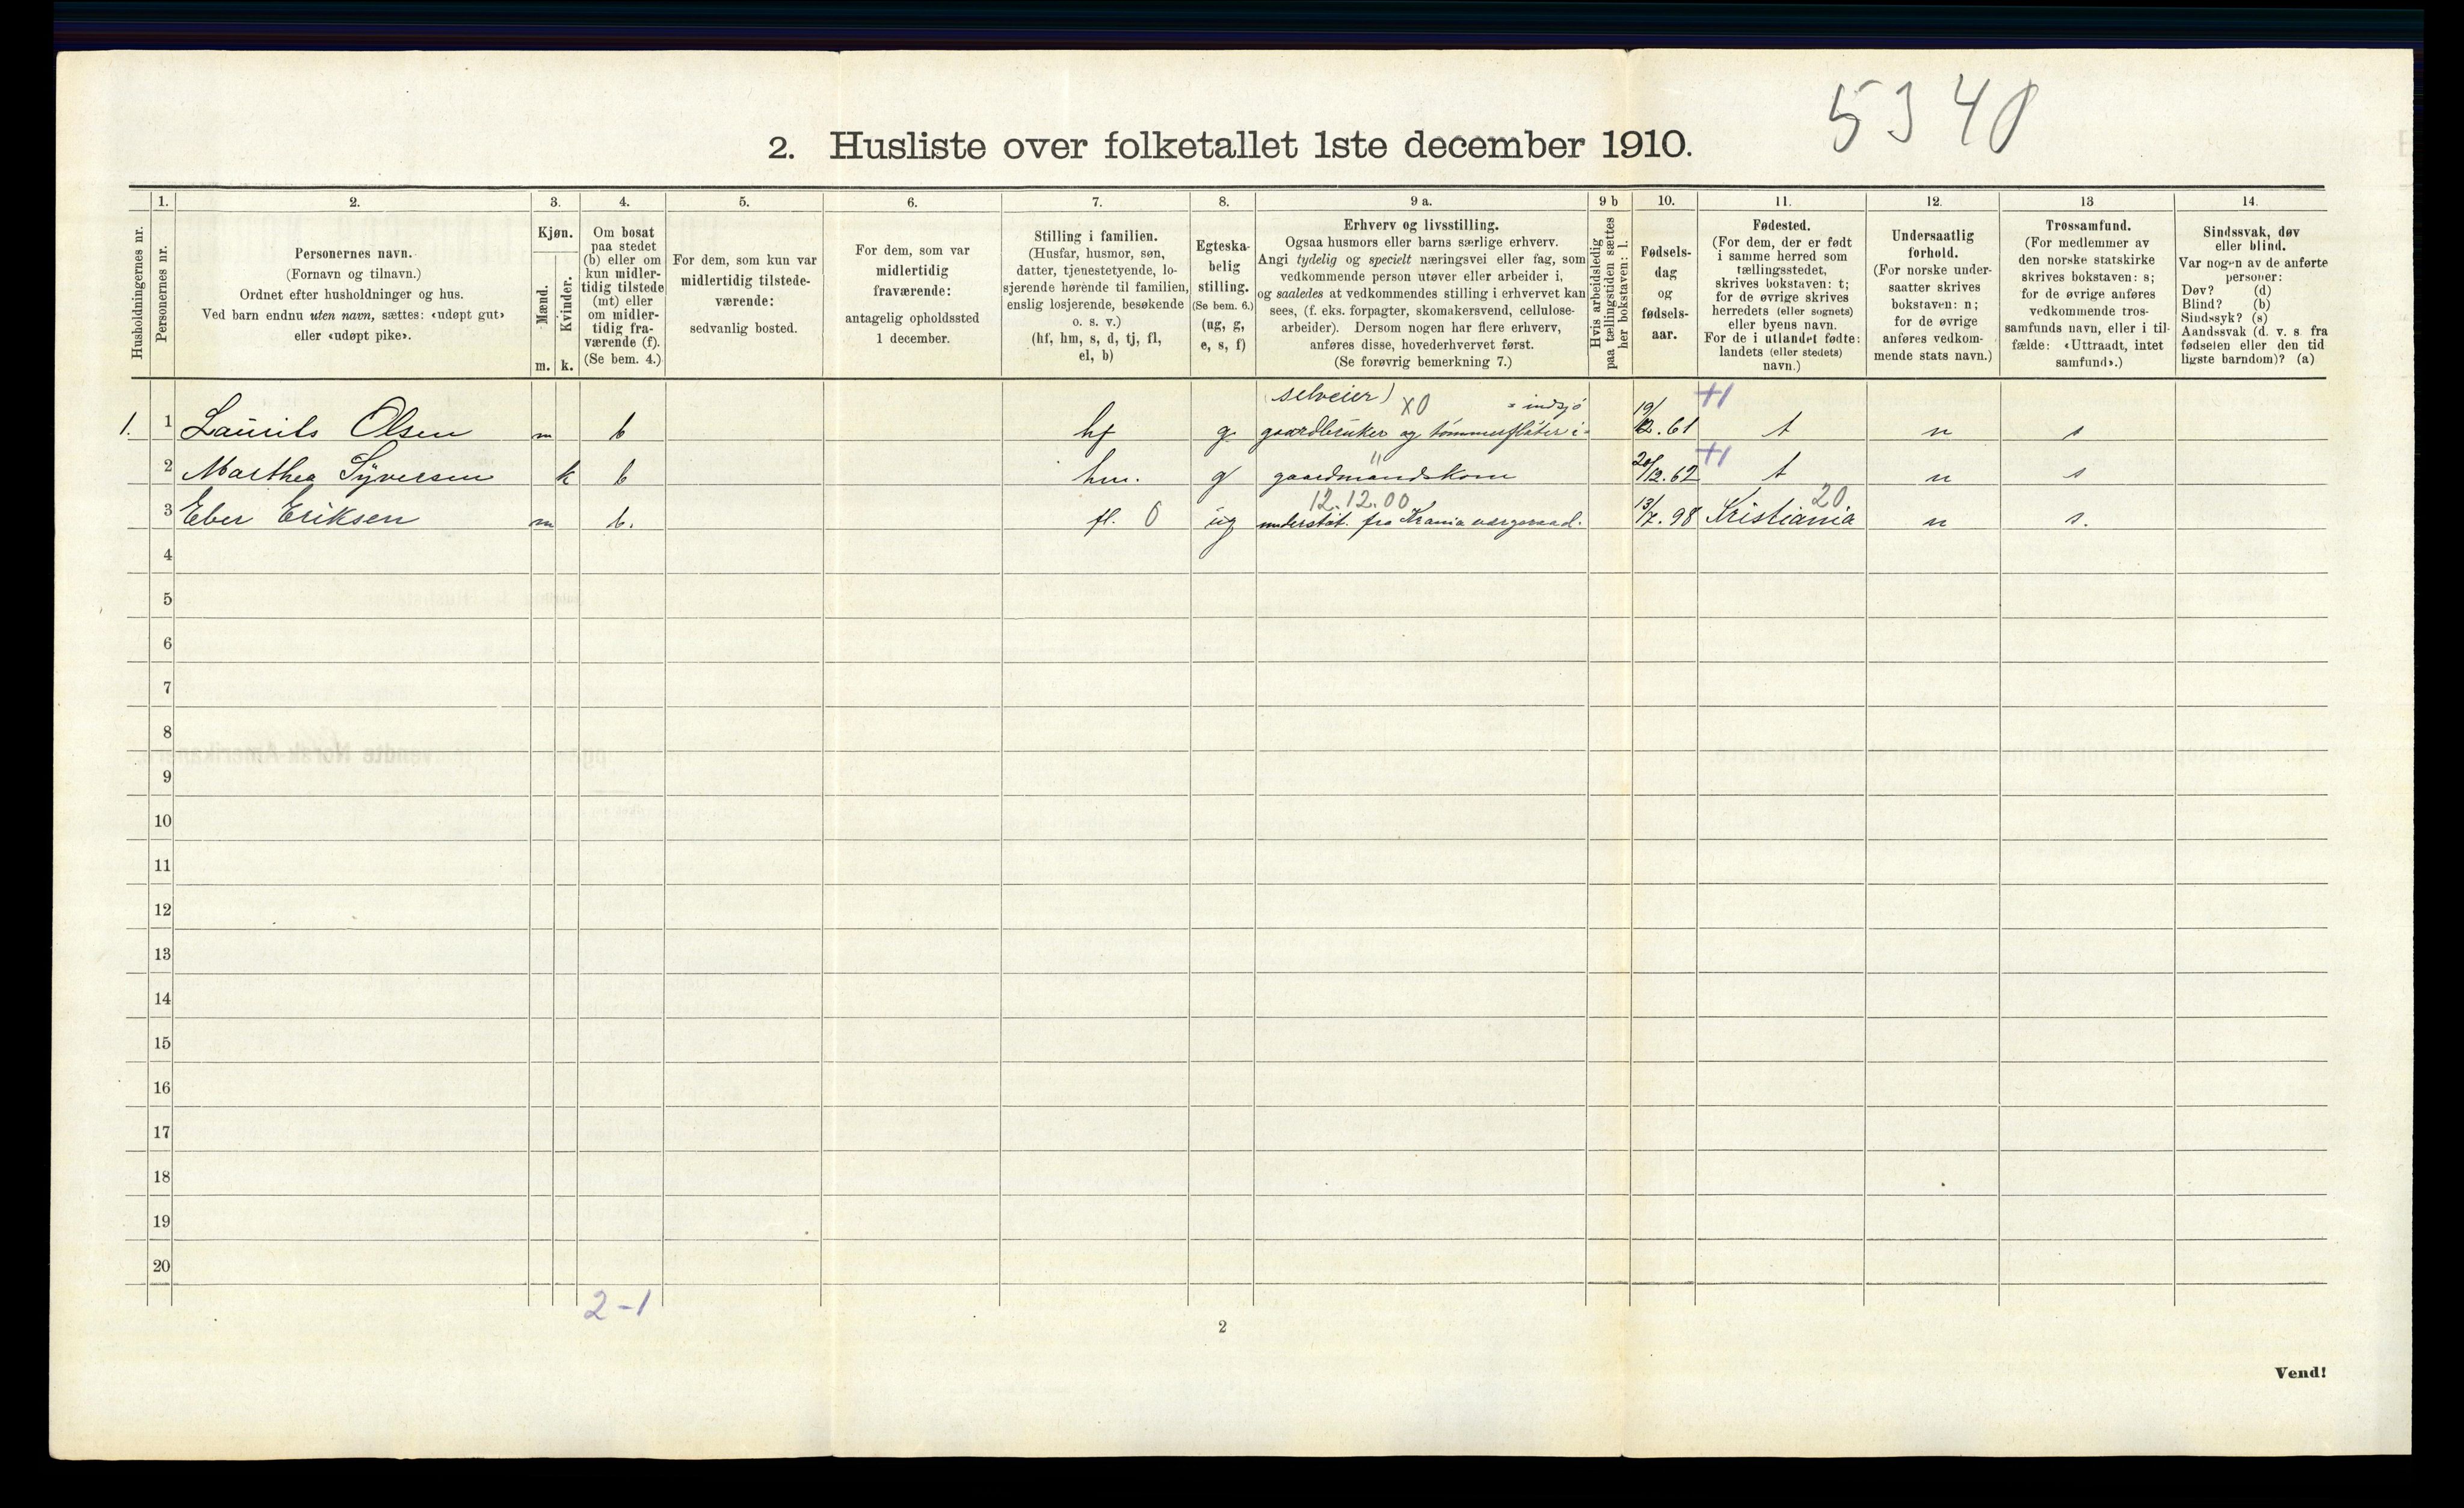 5340
2. Husliste over folketallet 1ste december 1910.
Husholdningernes nr.
1.
Personernes nr.
2.
Personernes navn.
(Fornavn og tilnavn.)
Ordnet efter husholdninger og hus.
Ved barn endnu uten navn, sættes: «udøpt gut»
eller «udøpt pike».
3.
Kjøn.
Mænd.
Kvinder.
m. k.
4.
Om bosat
paa stedet
(b) eller om
kun midler-
tidig tilstede
(mt) eller
om midler-
tidig fra-
værende (f).
(Se bem. 4.)
5.
For dem, som kun var
midlertidig tilstede-
værende:
sedvanlig bosted.
6.
For dem, som var
midlertidig
fraværende:
antagelig opholdssted
1 december.
7.
Stilling i familien.
(Husfar, husmor, søn,
datter, tjenestetyende, lo-
sjerende hørende til familien,
enslig losjerende, besøkende
o. s. v.)
(hf, hm, s, d, tj, fl,
el, b)
8.
Egteska-
belig
stilling.
(Se bem. 6.)
(ug, g,
e, s, f)
9 a.
Erhverv og livsstilling.
Ogsaa husmors eller barns særlige erhverv.
Angi tydelig og specielt næringsvei eller fag, som
vedkommende person utøver eller arbeider i,
og saaledes at vedkommendes stilling i erhvervet kan
sees, (f. eks. forpagter, skomakersvend, cellulose-
arbeider). Dersom nogen har flere erhverv,
anføres disse, hovederhvervet først.
(Se forøvrig bemerkning 7.)
9 b
Hvis arbeidsledig
paa tællingstiden sættes
her bokstaven: l.
10.
Fødsels-
dag
og
fødsels-
aar.
11.
Fødested.
(For dem, der er født
i samme herred som
tællingsstedet,
skrives bokstaven: t;
for de øvrige skrives
herredets (eller sognets)
eller byens navn.
For de i utlandet fødte:
landets (eller stedets)
navn.)
12.
Undersaatlig
forhold.
(For norske under-
saatter skrives
bokstaven: n;
for de øvrige
anføres vedkom-
mende stats navn.)
13
Trossamfund.
(For medlemmer av
den norske statskirke
skrives bokstaven: s;
for de øvrige anføres
vedkommende tros-
samfunds navn, eller i til-
fælde: «Uttraadt, intet
samfund».)
14.
Sindssvak, døv
eller blind.
Var nogen av de anførte
personer:
Døv? (d)
Blind? (b)
Sindssyk? (s)
Aandssvak (d. v. s. fra
fødselen eller den tid
ligste barndom)? (a)
(selveier) X0 = indsjö +1
1. 1 Laurits Olsen m b hf g gaardbruker og tömmerflöter i- 19/12.61 t n s
" +1
2 Marthea Syversen k b hm. g gaardmandskone 20/12.62 t n s
12.12.00 20
3 Eber Eriksen m b. fl. 0 ug understöt. fra Krania vergeraad. 13/7.98 Kristiania n s.
4
5
6
7
8
9
10
11
12
13
14
15
16
17
18
19
20
2-1
2
Vend!